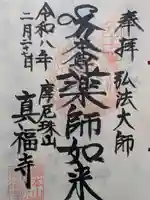 奉拝 弘法大師
薬師如来
令和八年
二月二十七日
摩尼珠山
真福寺